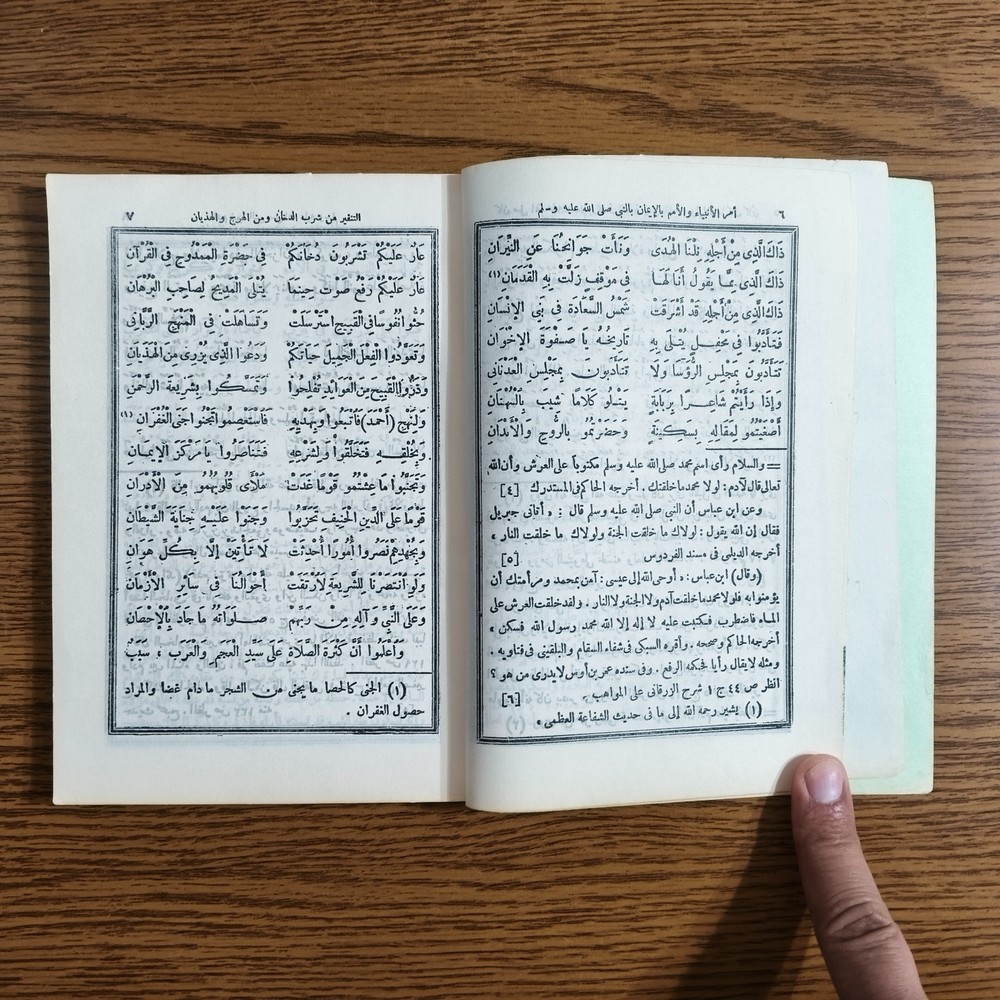 ٦ أمر الأنبياء والأمم بالإيمان بالنبي صلى الله عليه وسلم
ذَاكَ الَّذِى مِنْ أَجْلِهِ نِلْنَا الهُدَى وَنَأَتْ جَوَانِحُنَا عَنِ النِّيرَانِ
ذَاكَ الَّذِى بِمَا يَقُولُ أَنَا لَهَا فِى مَوْقِفٍ زَلَّتْ بِهِ الْقَدَمَانِ (١)
ذَاكَ الَّذِى مِنْ أَجْلِهِ قَدْ أَشْرَقَتْ شَمْسُ السَّعَادَةِ فِى بَنِى الإِنْسَانِ
فَتَأَدَّبُوا فِى مَحْفِلٍ يُتْلَى بِهِ تَارِيخُهُ يَا صَفْوَةَ الإِخْوَانِ
تَتَأَدَّبُونَ بِمَجْلِسِ الرُّؤَسَا وَلَا تَتَأَدَّبُونَ بِمَجْلِسِ الْعَدْنَانِى
وَإِذَا رَأَيْتُمْ شَاعِرًا بِرَبَابَةٍ يَتْلُو كَلَامًا شِيبَ بِالْبُهْتَانِ
أَصْغَيْتُمُو لِمَقَالِهِ بِسَكِينَةٍ وَحَضَرْتُمُو بِالرُّوحِ وَالْأَبْدَانِ
= والسلام رأى اسم محمد صلى الله عليه وسلم مكتوبا على العرش وأن الله
تعالى قال لآدم : لولا محمد ما خلقتك . أخرجه الحاكم فى المستدرك [٤]
وعن ابن عباس أن النبي صلى الله عليه وسلم قال : « أتانى جبريل
فقال إن الله يقول : لولاك ما خلقت الجنة ولولاك ما خلقت النار ،
أخرجه الديلمى فى مسند الفردوس [٥]
(وقال) ابن عباس : « أوحى الله إلى عيسى : آمن بمحمد ومر أمتك أن
يؤمنوا به فلولا محمد ما خلقت آدم ولا الجنة ولا النار . ولقد خلقت العرش على
الماء فاضطرب فكتبت عليه لا إله إلا الله محمد رسول الله فسكن ،
أخرجه الحاكم وصححه . وأقره السبكى فى شفاء السقام والبلقينى فى فتاويه .
ومثله لا يقال رأيا فحكمه الرفع . وفى سنده عمر بن أوس لا يدرى من هو ؟
انظر ص ٤٤ ج ١ شرح الزرقانى على المواهب . [٦]
(١) يشير رحمه الله إلى ما فى حديث الشفاعة العظمى .
التنفير من شرب الدخان ومن الهرج والهذيان ٧
عَارٌ عَلَيْكُمْ تَشْرَبُونَ دُخَانَكُمْ فِى حَضْرَةِ الْمَمْدُوحِ فِى الْقُرْآنِ
عَارٌ عَلَيْكُمْ رَفْعُ صَوْتٍ حِينَمَا يُتْلَى الْمَدِيحُ لِصَاحِبِ الْبُرْهَانِ
حُثُّوا نُفُوسًا فِى الْقَبِيحِ اسْتَرْسَلَتْ وَتَسَاهَلَتْ فِى الْمَنْهَجِ الرَّبَّانِى
وَتَعَوَّدُوا الْفِعْلَ الْجَمِيلَ حَيَاتَكُمْ وَدَعُوا الَّذِى يُزْرِى مِنَ الْهَذَيَانِ
وَذَرُوا الْقَبِيحَ مِنَ الْعَوَائِدِ تُفْلِحُوا وَتَمَسَّكُوا بِشَرِيعَةِ الرَّحْمٰنِ
وَلِنَهْجِ (أَحْمَدَ) فَاتْبَعُوا وَبِهَدْيِهِ فَاسْتَعْصِمُوا تَجْنُوا جَنَى الْغُفْرَانِ (١)
وَبِخُلْقِهِ فَتَخَلَّقُوا وَلِشَرْعِهِ فَتَنَاصَرُوا يَا مَرْكَزَ الْإِيمَانِ
وَتَجَنَّبُوا مَا عِشْتُمُو قَوْمًا غَدَتْ مَلْأَى قُلُوبُهُمُو مِنَ الْأَدْرَانِ
قَوْمًا عَلَى الدِّينِ الْحَنِيفِ تَحَزَّبُوا وَجَنَوْا عَلَيْهِ جِنَايَةَ الشَّيْطَانِ
وَبِجُهْدِهِمْ نَصَرُوا أُمُورًا أُحْدِثَتْ لَا تَأْتِيَنَّ إِلَّا بِكُلِّ هَوَانِ
وَلَوِ انْتَصَرْنَا لِلشَّرِيعَةِ لَارْتَقَتْ أَحْوَالُنَا فِى سَائِرِ الْأَزْمَانِ
وَعَلَى النَّبِىِّ وَآلِهِ مِنْ رَبِّهِمْ صَلَوَاتُهُ مَا جَادَ بِالْإِحْسَانِ
وَاعْلَمُوا أَنَّ كَثْرَةَ الصَّلَاةِ عَلَى سَيِّدِ الْعَجَمِ وَالْعَرَبِ ، سَبَبٌ
(١) الجنى كالحصا ما يجنى من الشجر ما دام غضا والمراد
حصول الغفران .